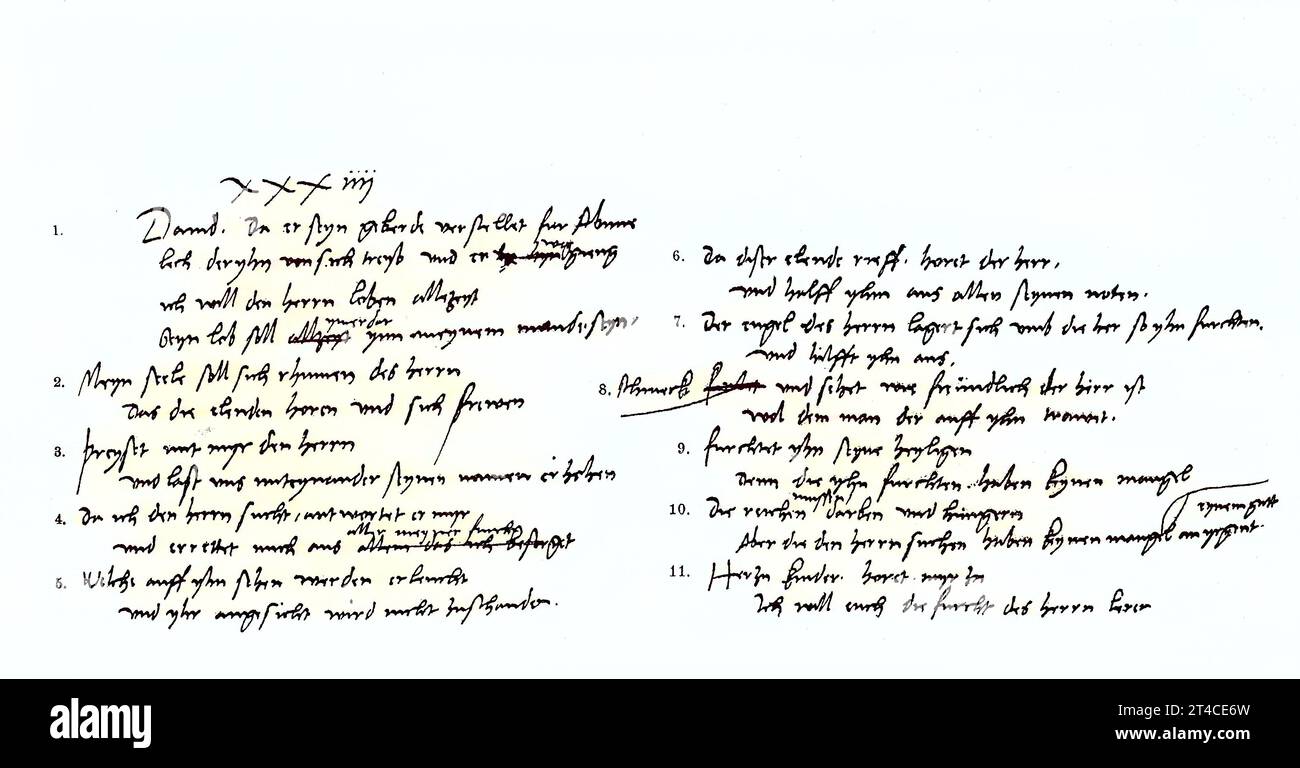 XXXiiii
1. Dauid. Da er seyn geberde verstellet fur Abime
lech der yhn von sich treyb und er weg gieng
ich will den herrn loben allezeyt
Seyn lob soll allzeyt ymerdar ynn meynem munde seyn,
2. Meyn seele soll sich rhumen des herrn
das die elenden horen und sich frewen
3. Preyset mit myr den herrn
und last uns miteynander seynen namen erhehen
4. Da ich den herrn sucht, antwortet er myr
und errettet mich aus aller meyner furcht allem das ich besorget
5. Welche auff yhn sehen werden erleucht
und yhr angesicht wird nicht zuschanden.
6. Da diser elende rieff, horet der herr,
und halff yhm aus allen seynen noten.
7. Der engel des herrn lagert sich umb die her so yhn furchten,
und hilfft yhn aus,
8. Schmeckt und sehet wie freundlich der herr ist
wol dem man der auff yhn trawet.
9. furchtet yhn seyne heyligen
Denn die yhn furchten haben keynen mangel
10. Die reichen mussen darben und hungern
Aber die den herrn suchen haben keynen mangel an yrgent eynem gutt
11. Her zu kinder. horet myr zu
Ich will euch die furcht des herrn leren
alamy
alamy
Image ID: 2T4CE6W
www.alamy.com